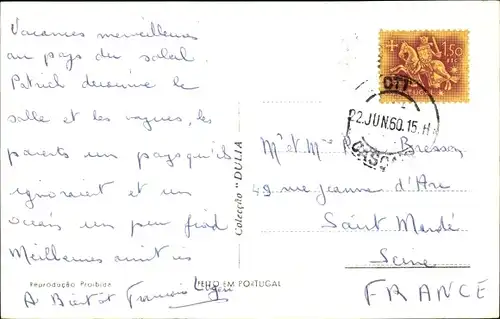 Vacances merveilleuses
au pays du soleil
Patrick découvre le
salle et les vagues, les
parents un pays qu'ils
ignoraient et un
océan un peu froid
Meilleures amitiés
A Bientot François
Reprodução Proibida
FEITO EM PORTUGAL
Colecção "DULIA"
1$50
PORTUGAL
22.JUN.60.15.H
CASCA
M et Mme Bresson
49 rue Jeanne d'Arc
Saint Mandé
Seine
FRANCE